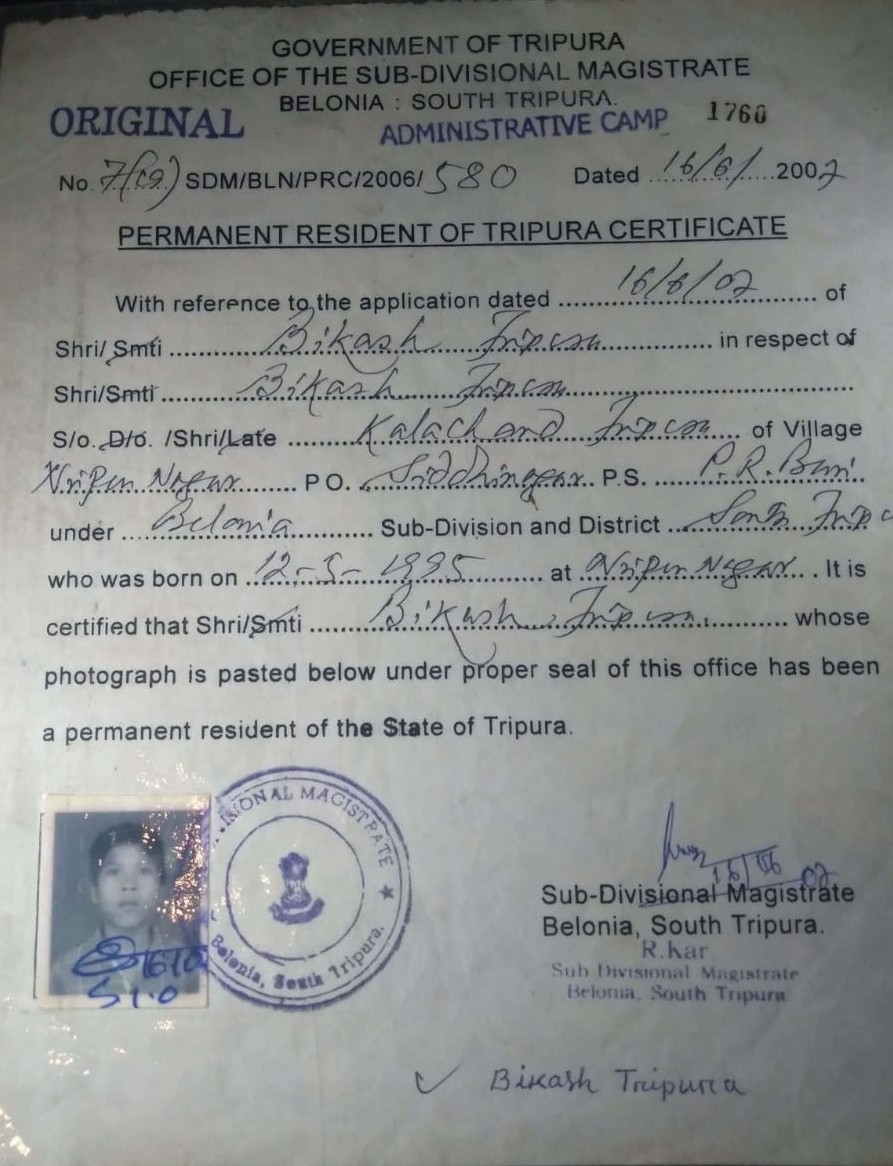 GOVERNMENT OF TRIPURA
OFFICE OF THE SUB-DIVISIONAL MAGISTRATE
BELONIA : SOUTH TRIPURA.
ORIGINAL ADMINISTRATIVE CAMP 1760
No. 7(19) SDM/BLN/PRC/2006/ 580 Dated 16/6/ 2007
PERMANENT RESIDENT OF TRIPURA CERTIFICATE
With reference to the application dated 16/6/07 of
Shri/ Smti Bikash Tripura in respect of
Shri/Smti Bikash Tripura
S/o. D/o. /Shri/Late Kalachand Tripura of Village
Nripen Nagar P O. Siddhinagar P.S. P.R. Bari
under Belonia Sub-Division and District South Trip
who was born on 12-5-1995 at Nripen Nagar. It is
certified that Shri/Smti Bikash Tripura whose
photograph is pasted below under proper seal of this office has been
a permanent resident of the State of Tripura.
IONAL MAGISTRATE ★
Belonia, South Tripura.
S1.0
16/06 07
Sub-Divisional Magistrate
Belonia, South Tripura.
R.Kar
Sub Divisional Magistrate
Belonia, South Tripura
Bikash Tripura